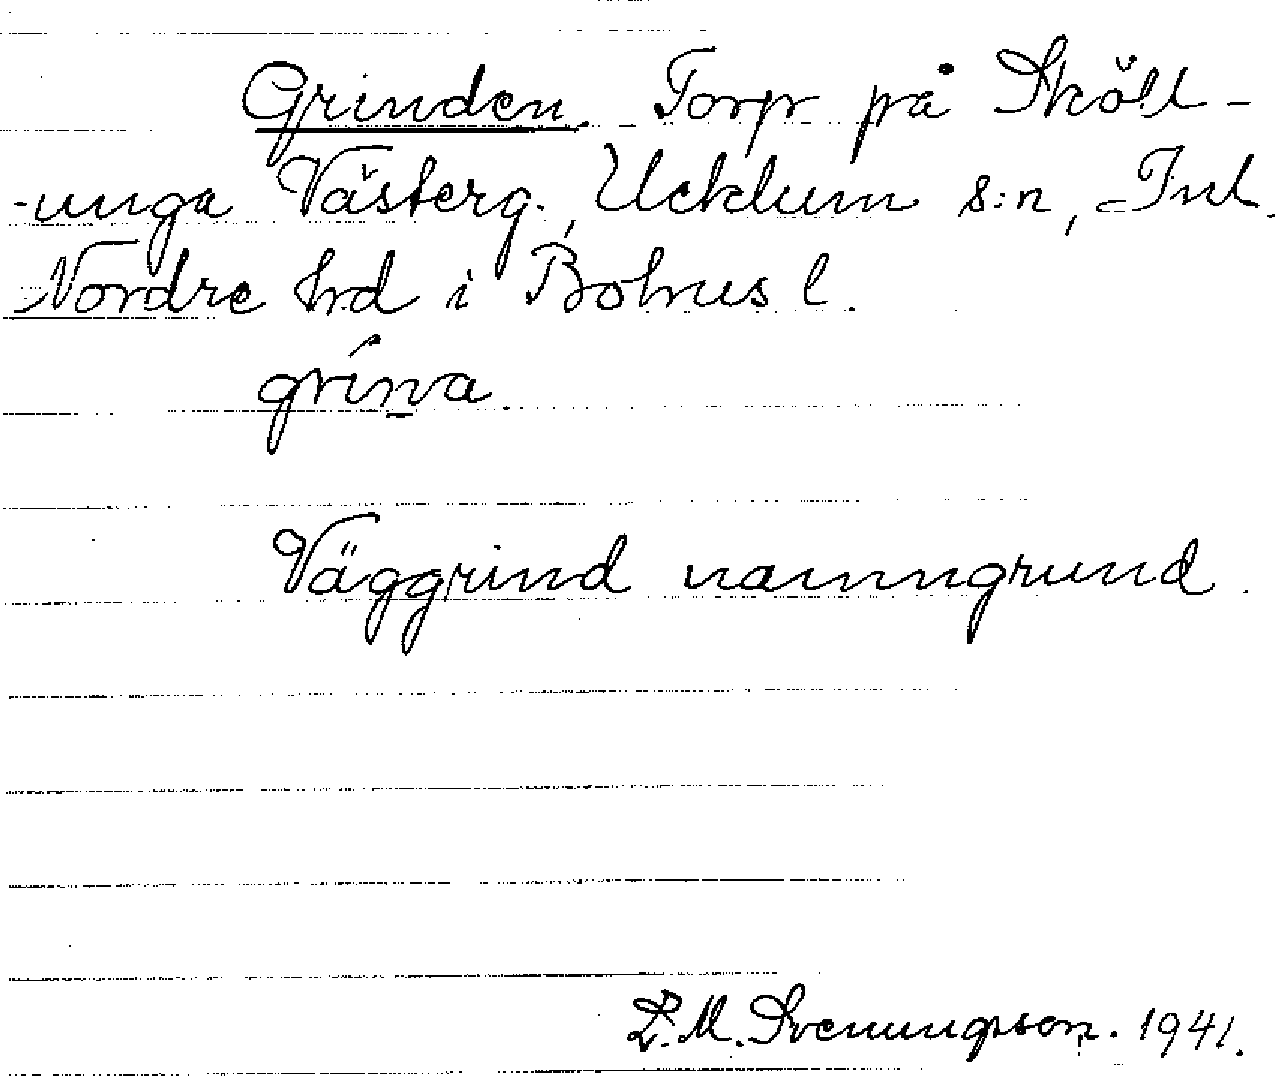 Grinden. Torp på Sköll-
-unga Västerg., Ucklum s:n, Inl.
Nordre hrd i Bohus l.
grína
Väggrind namngrund.
L. M. Svenungsson. 1941.